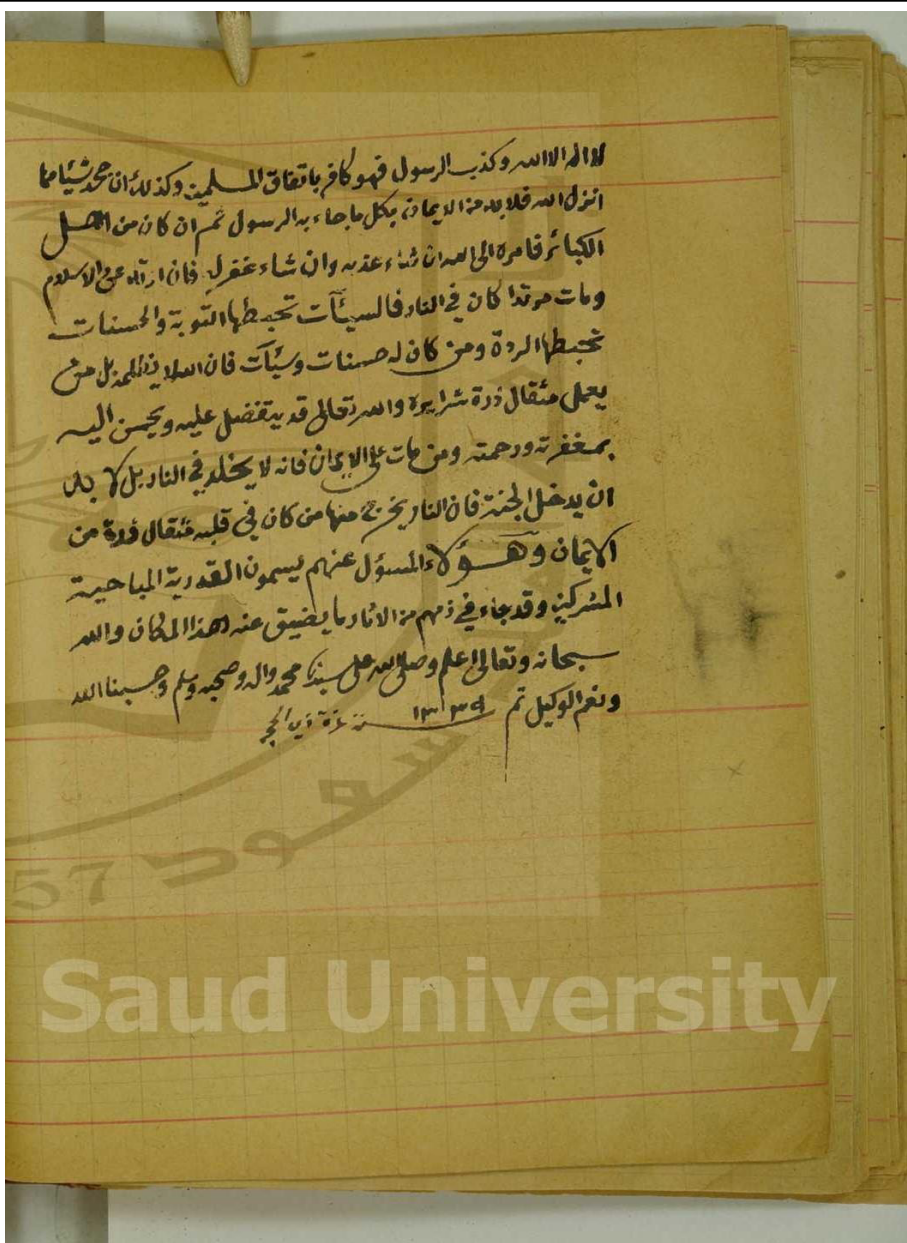 لااله الا الله وكذب الرسول فهو كافر باتفاق المسلمين وكذلك ان جحد شيئا مما
انزل الله فلا بد من الايمان بكل ما جاء به الرسول ثم ان كان من اهل
الكبائر فامره الى الله ان شاء عذبه وان شاء غفر له فان ارتد عن الاسلام
ومات مرتدا كان في النار فالسيئآت تحبطها التوبة والحسنات
تحبطها الردة ومن كان له حسنات وسيئآت فان الله لا يظلمه بل من
يعمل مثقال ذرة شرا يره والله تعالى قد يتفضل عليه ويحسن اليه
بمغفرته ورحمته ومن مات على الايمان فانه لا يخلد في النار بل لا بد
ان يدخل الجنة فان النار يخرج منها من كان في قلبه مثقال ذرة من
الايمان وهؤلاء المسؤل عنهم يسمون القدرية المباحية
المشركين وقد جاء في ذمهم من الاثار ما يضيق عنه هذا المكان والله
سبحانه وتعالى اعلم وصلى الله على سيدنا محمد واله وصحبه وسلم وحسبنا الله
ونعم الوكيل تم ١٣٣٩ سنة غرة ذي الحجر
سعود 57
Saud University